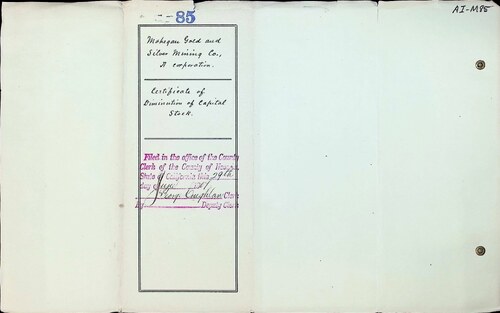 85
AI-M85
Mohegan Gold and
Silver Mining Co.,
A corporation.
Certificate of
Diminution of Capital
Stock.
Filed in the office of the County
Clerk of the County of
State of California this 29th
day June
Geo. Coughlan Clerk
By Deputy Clerk